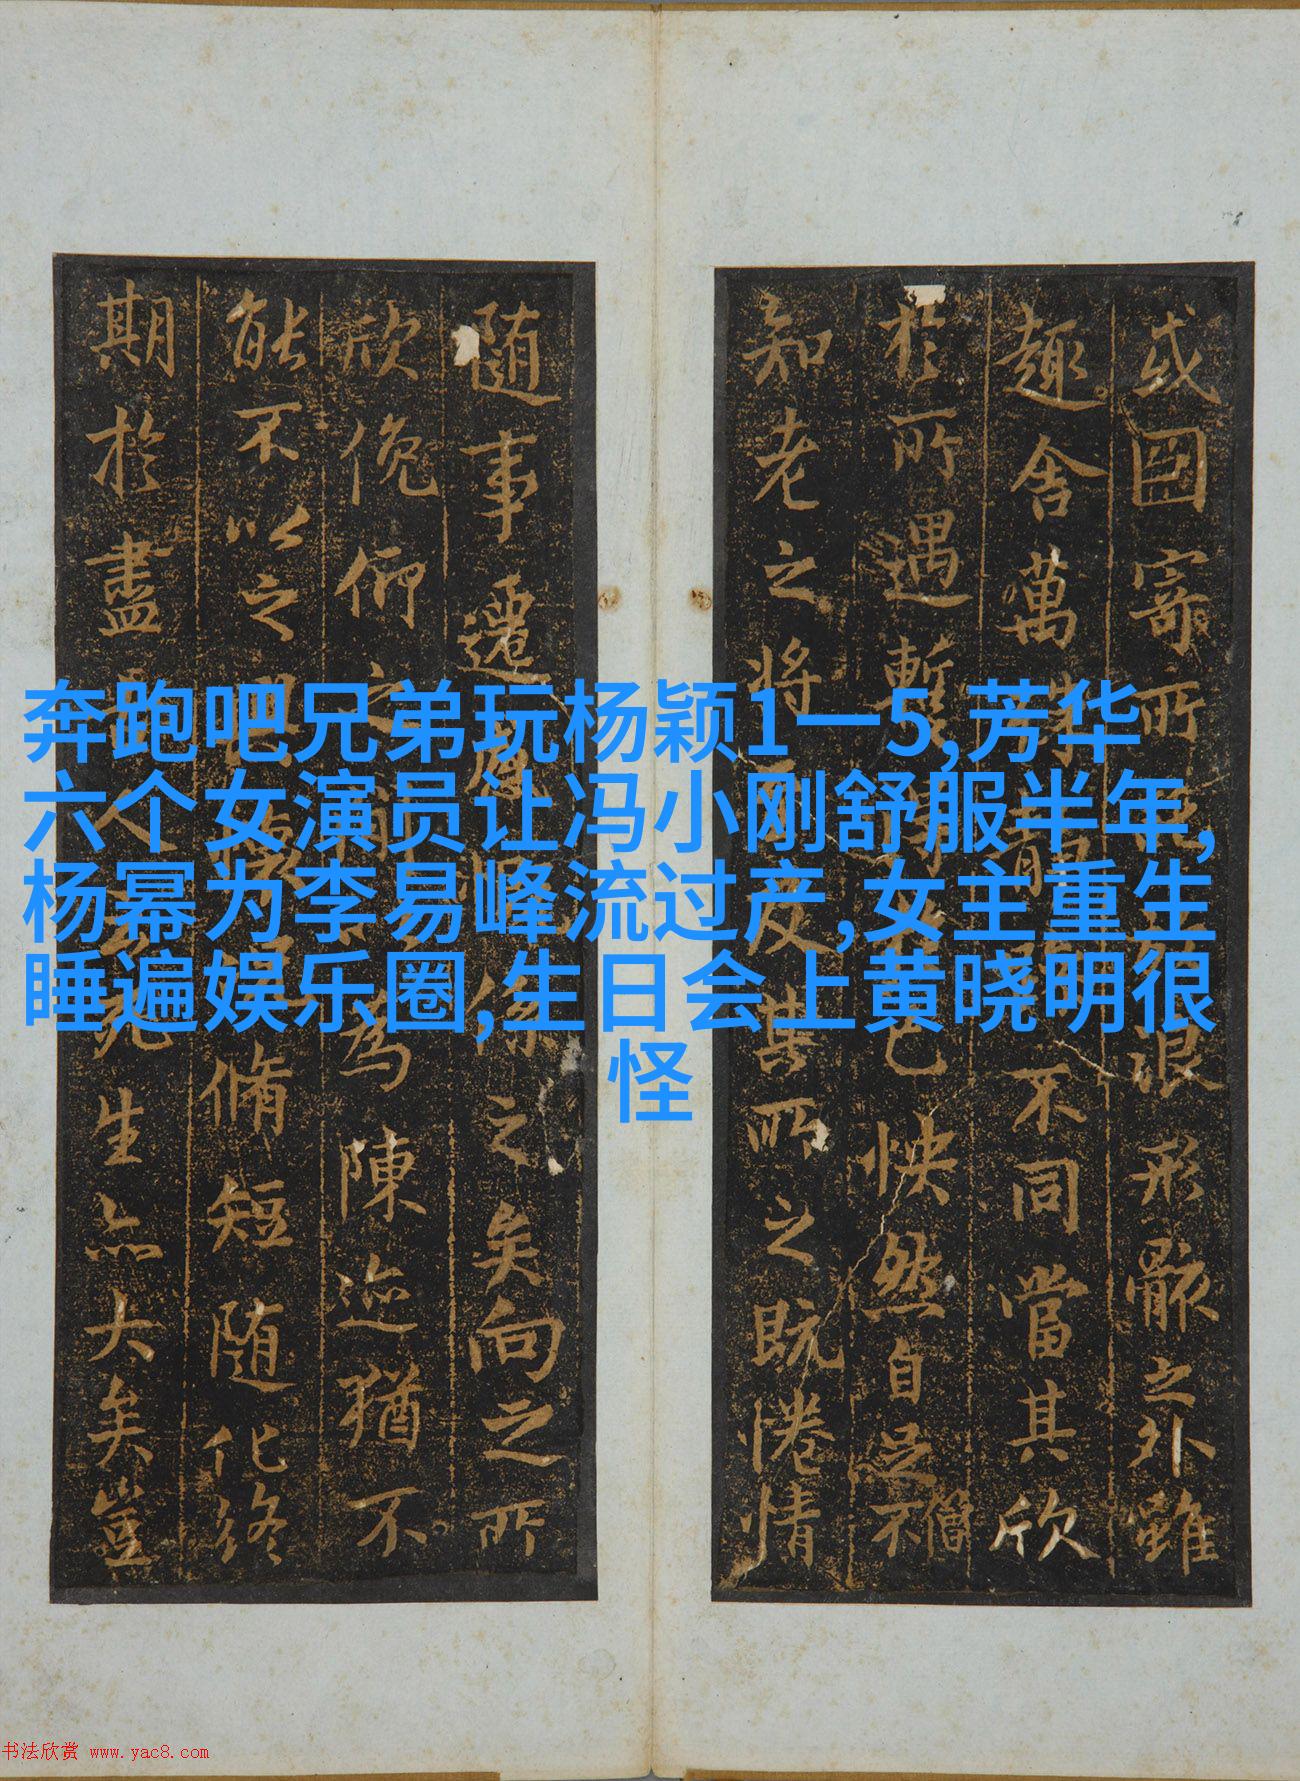 奔跑吧兄弟玩杨颖1一5,芳华
六个女演员让冯小刚舒服半年,
杨幂为李易峰流过产,女主重生
睡遍娱乐圈,生日会上黄晓明很
怪
或囙寄所浪形骸之外雖
趣舍萬不同當其欣
於所遇蹔己怏然自足不僧
知老之將及其所之既惓情
隨事遷係之矣向之所
欣俛仰之為陳迹猶不
能不以之脩短隨化終
期於盡人死生亦大矣豈
书法欣赏 www.yac8.com